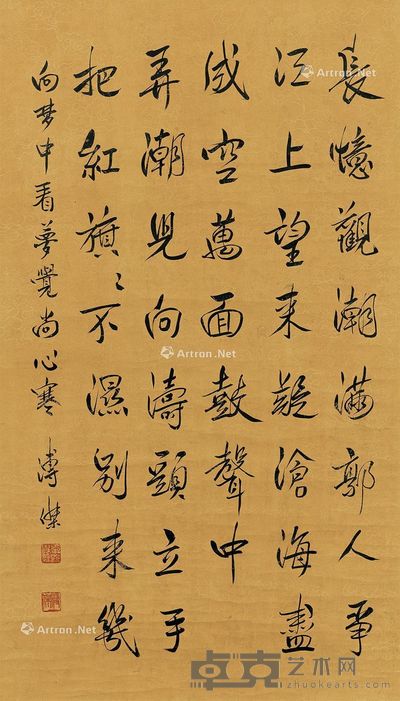 長憶觀潮滿郭人爭
江上望來疑滄海盡
成空萬面鼓聲中
弄潮兒向濤頭立手
把紅旗〻不濕別來幾
向梦中看夢覺尚心寒 溥傑
Artron.Net
Artron.Net
Artron.Net
卓克艺术网
zhuokearts.com